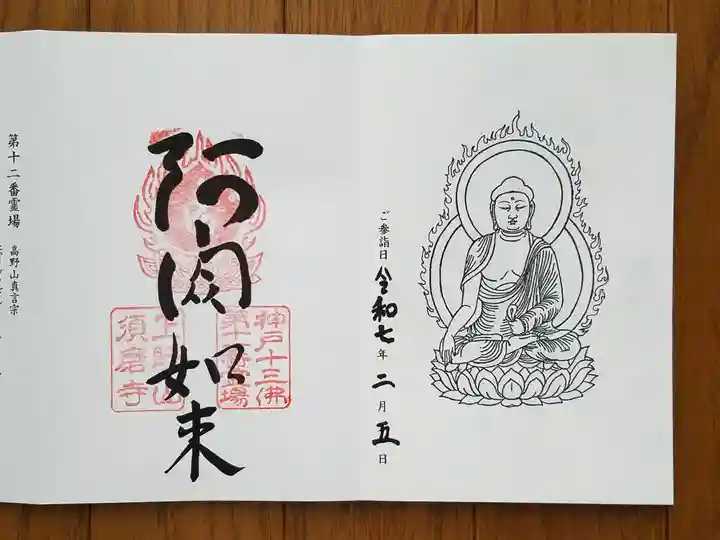 ご参詣日 令和七年 二月 五日
阿閦如来
神戸十三佛
第十二番霊場
上野山
須磨寺
第十二番霊場 高野山真言宗